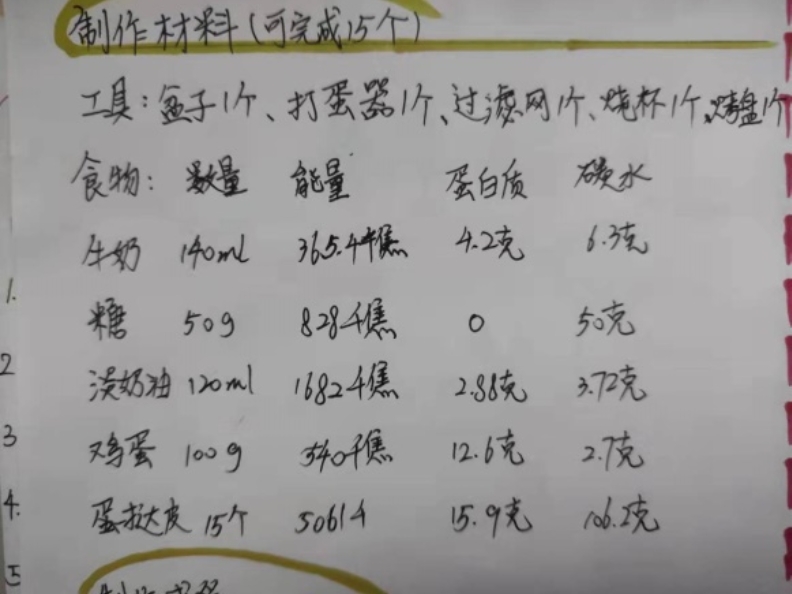 制作材料(可完成15个)
工具:盒子1个、打蛋器1个、过滤网1个、烧杯1个、烤盘1个
食物: 数量 能量 蛋白质 碳水
牛奶 140ml 365.4千焦 4.2克 6.3克
1.
糖 50g 828千焦 0 50克
2
淡奶油 120ml 1682千焦 2.88克 3.72克
3
鸡蛋 100g 540千焦 12.6克 2.7克
4.
蛋挞皮 15个 5061千 15.9克 106.2克
5